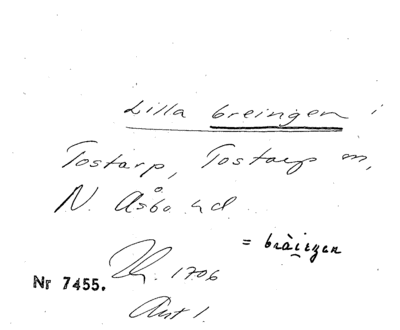 Lilla breingen i
Tostarp, Tostarp m,
N. Åsbo hd
= brä
Nr 7455. 1706
Akt 1.